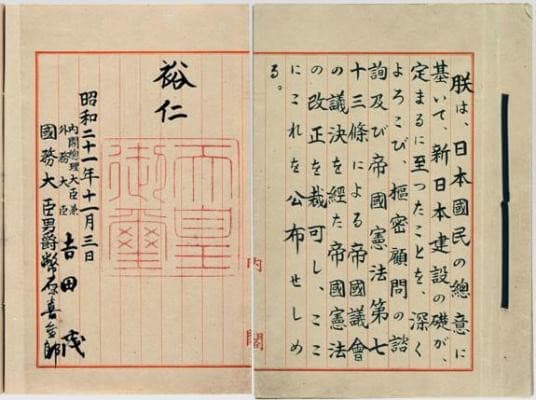 朕は、日本國民の總意に
基いて、新日本建設の礎が、
定まるに至つたことを、深く
よろこび、樞密顧問の諮
詢及び帝國憲法第七
十三條による帝國議會
の議決を経た帝國憲法
の改正を裁可し、ここ
にこれを公布せしめ
る。
裕仁
天皇御璽
昭和二十一年十一月三日
内閣總理大臣兼
外務大臣 吉田茂
國務大臣男爵幣原喜重郎
内閣